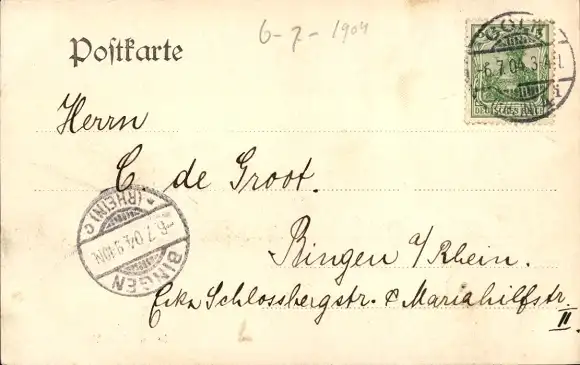 6-7-1904
Postkarte
CÖLN
6.7.04.3-4
DEUTSCHES REICH
Herrn
C de Groot.
Bingen a/Rhein.
Ecke Schlossbergstr. & Mariahilfstr.
II.
BINGEN
6.7.04.9-10N.
* (RHEIN) c